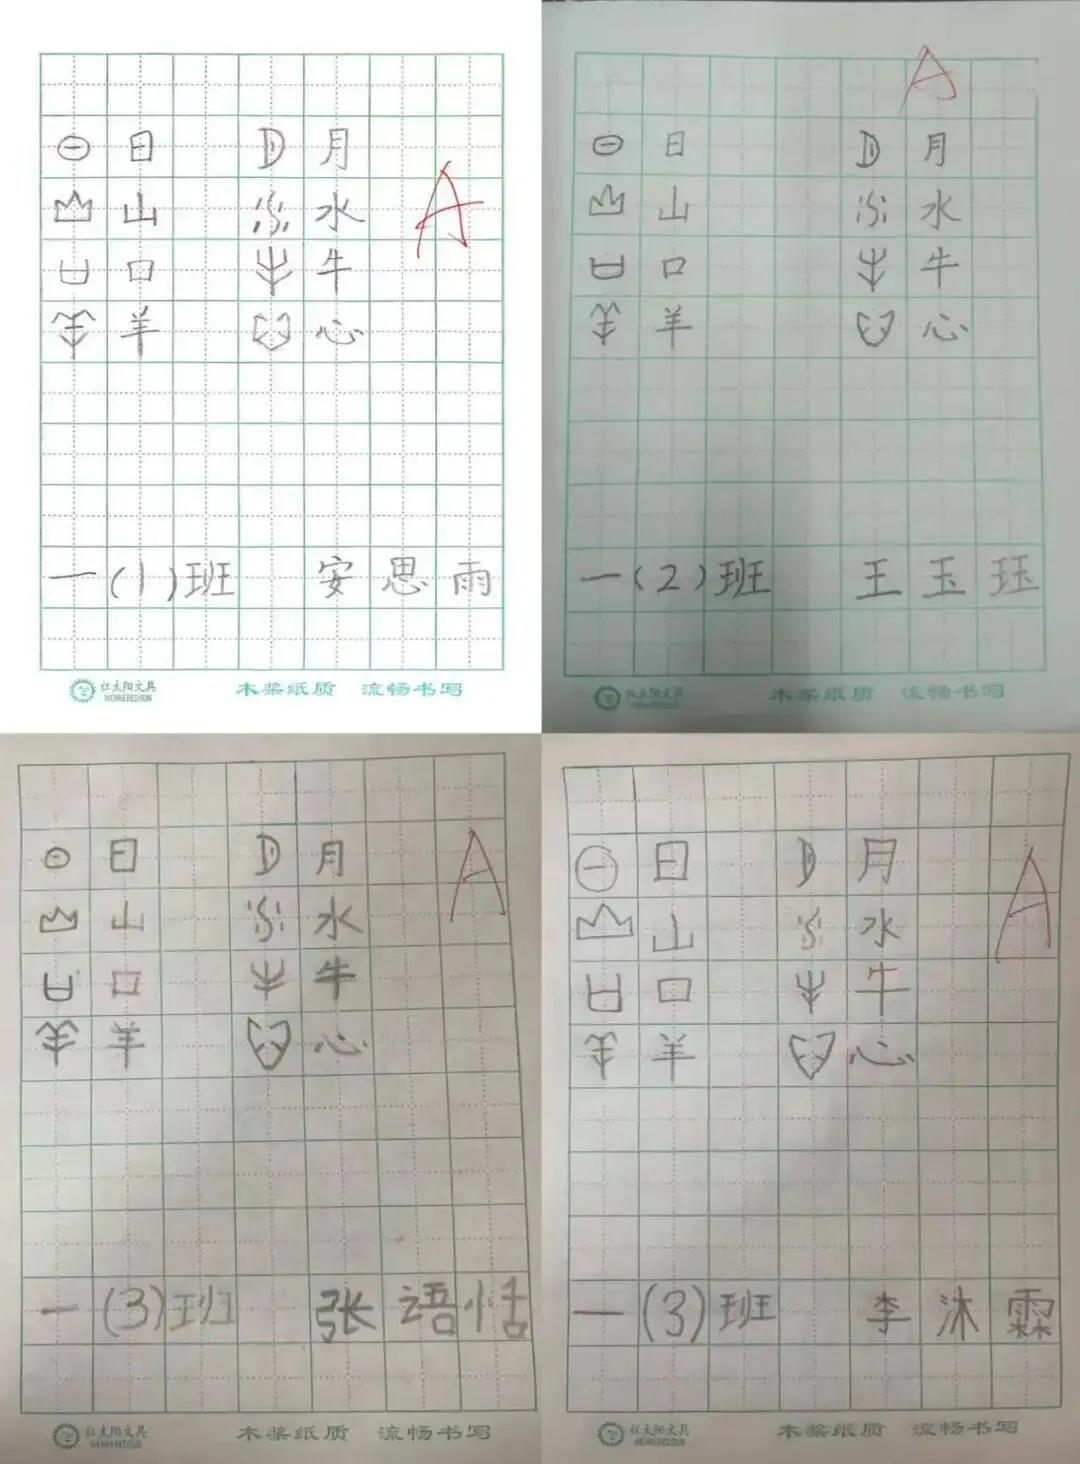 A
日 月
山 水
口 牛
羊 心
一(1)班 安思雨
红太阳文具
WENREDSUN
木浆纸质 流畅书写
A
日 月
山 水
口 牛
羊 心
一(2)班 王玉珏
红太阳文具
木浆纸质 流畅书写
A
日 月
山 水
口 牛
羊 心
一(3)班 张语恬
红太阳文具
木浆纸质 流畅书写
A
日 月
山 水
口 牛
羊 心
一(3)班 李沐霖
红太阳文具
木浆纸质 流畅书写